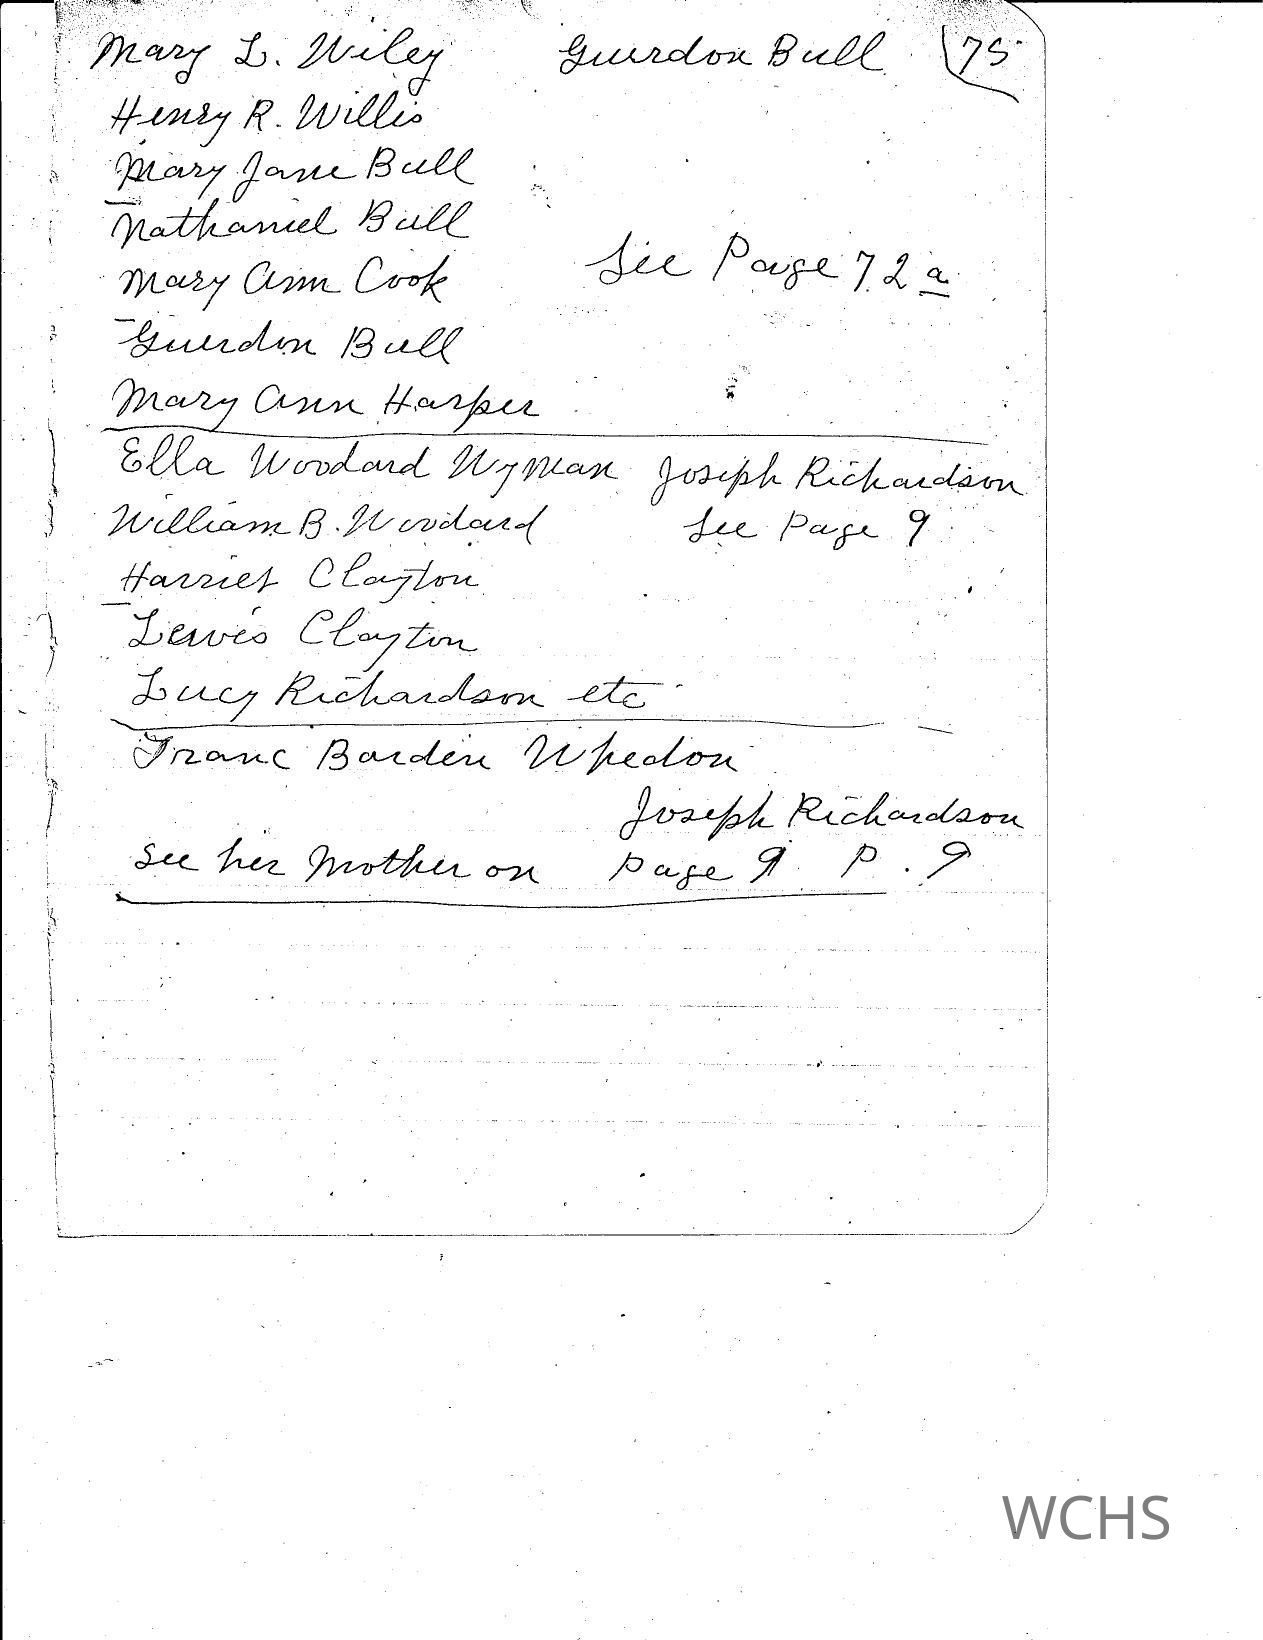 Mary L. Wiley Guerdon Bull 75
Henry R. Willis
Mary Jane Bull
Nathaniel Bull
Mary Ann Cook See Page 72a
Guerdon Bull
Mary Ann Harper
Ella Woodard Wyman Joseph Richardson
William B. Woodard See Page 9
Harriet Clayton
Lewis Clayton
Lucy Richardson etc
Franc Barden Whedon
Joseph Richardson
See her Mother on Page 9 P. 9
WCHS